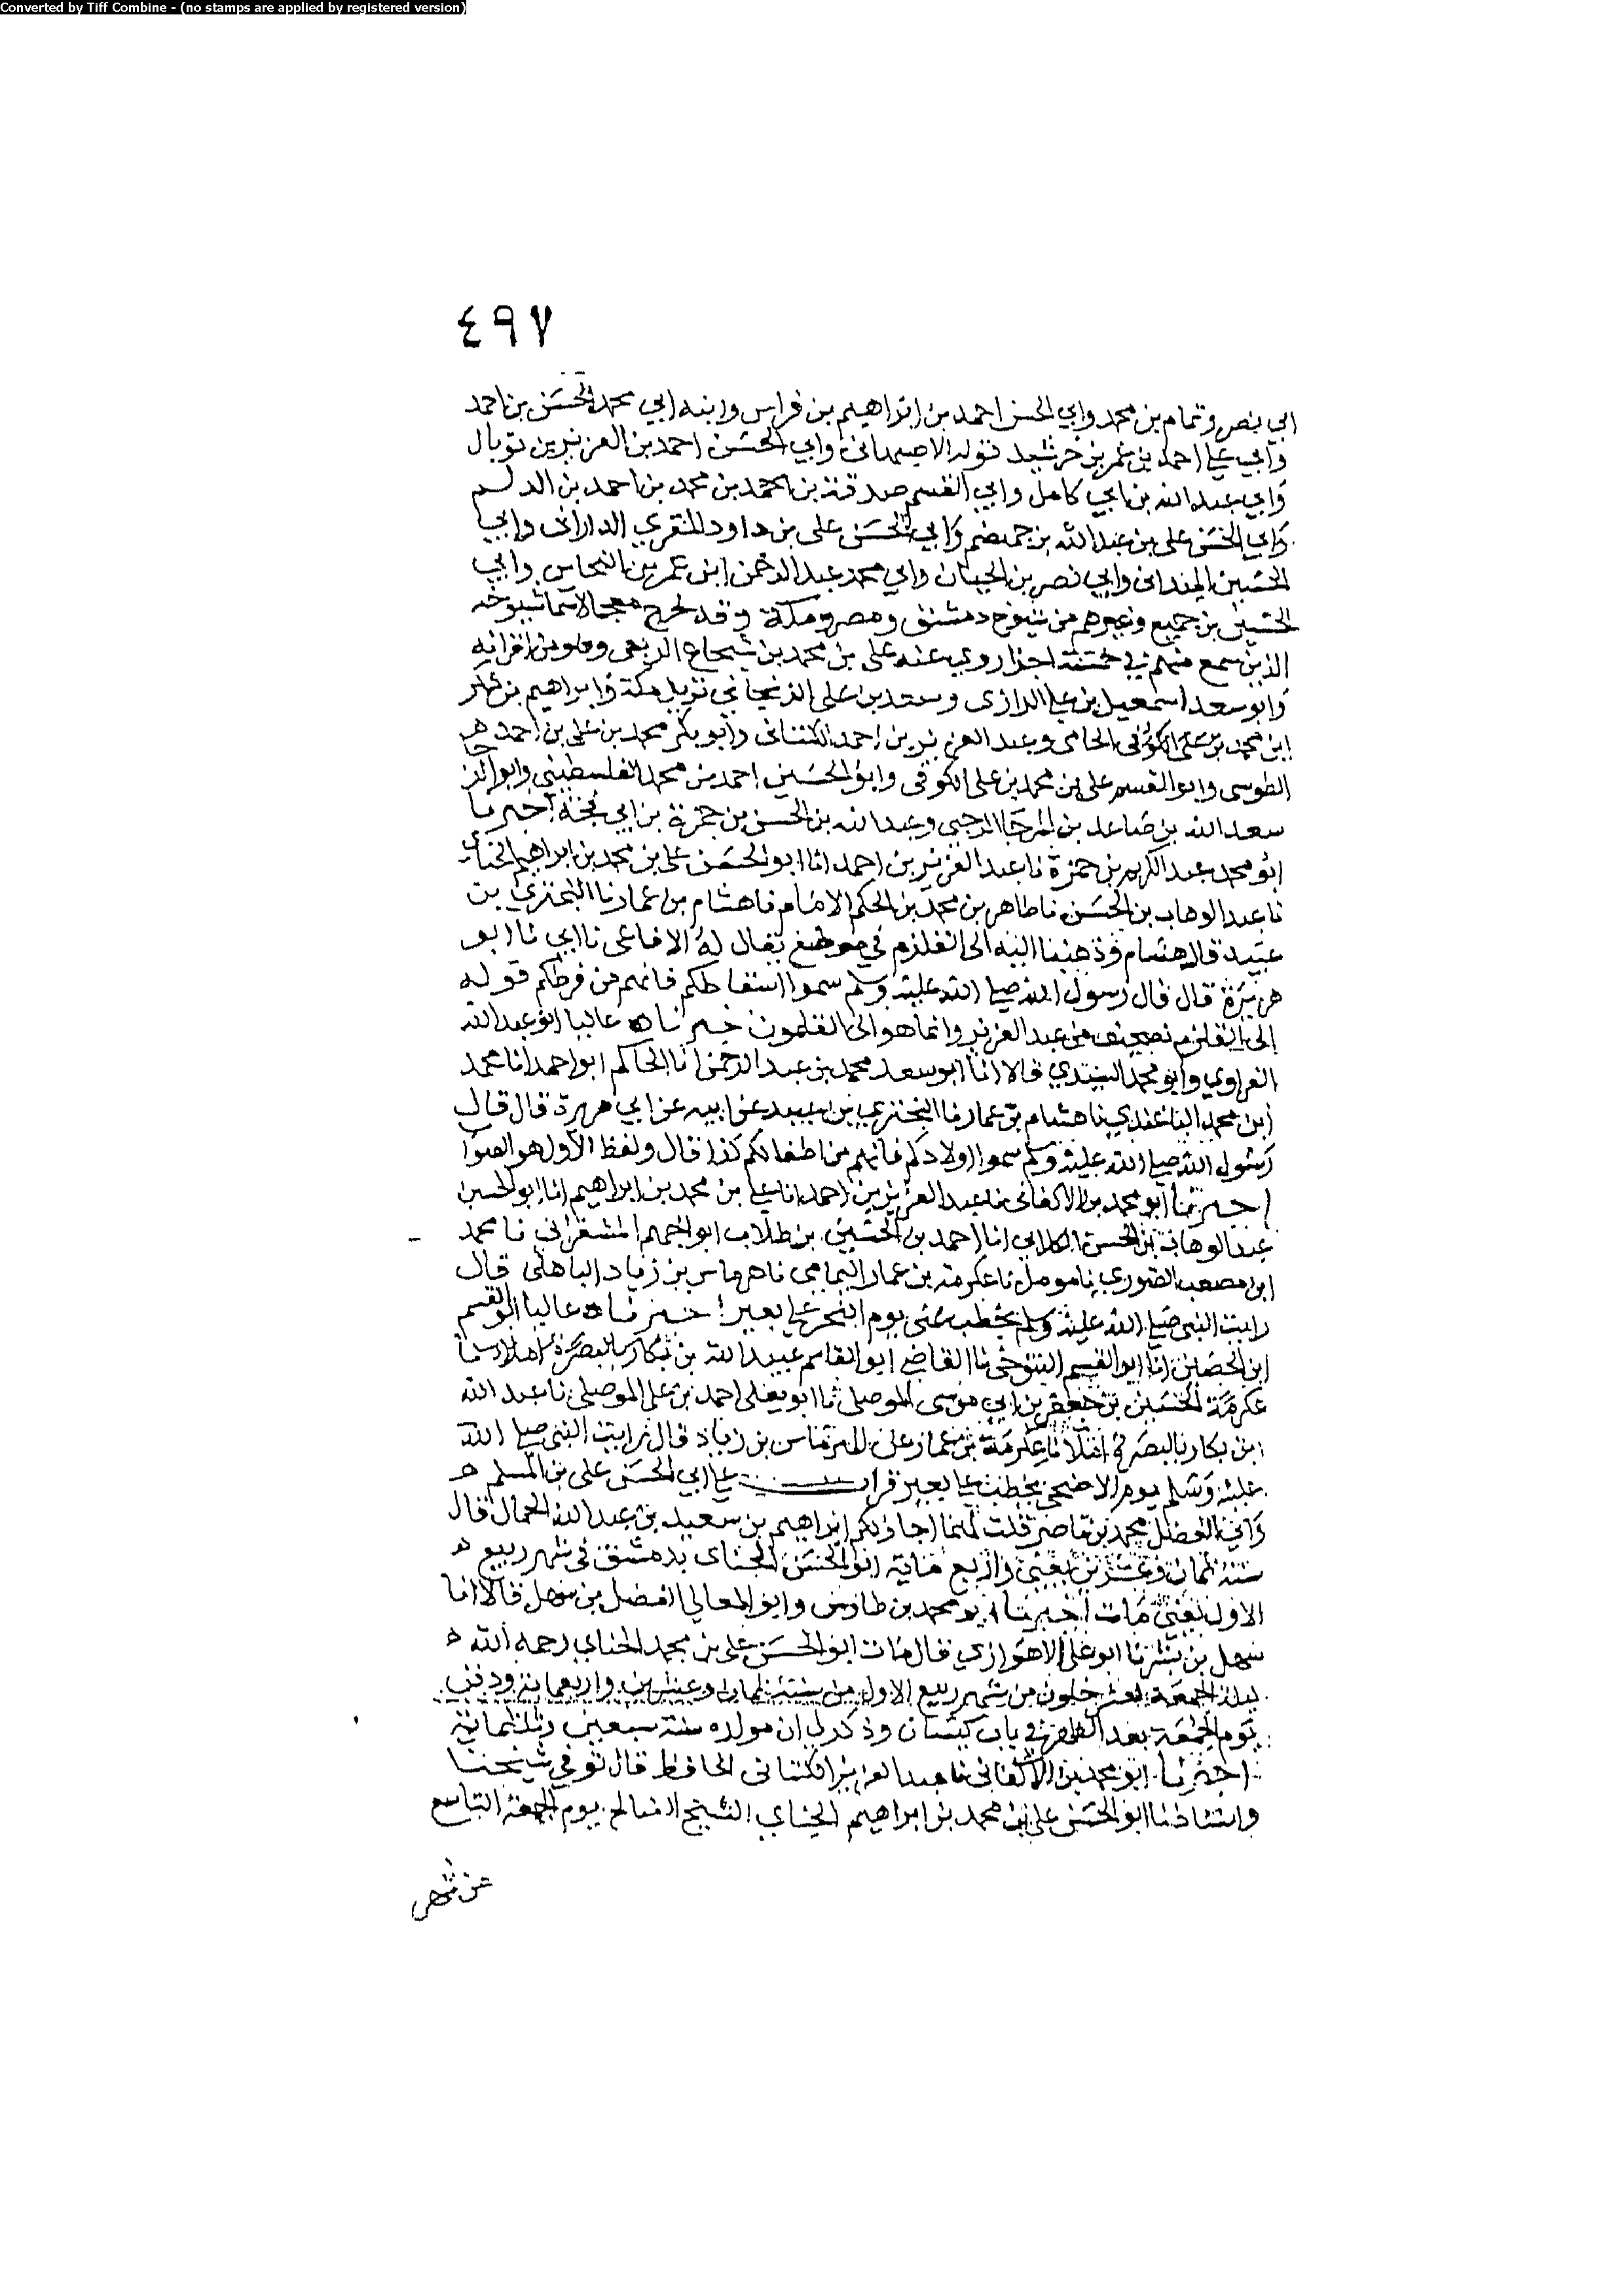 Converted by Tiff Combine - (no stamps are applied by registered version)
٤٩٧
ابي نصر وتمام بن محمد وابي الحسن احمد بن ابراهيم بن فراس وابنه ابي محمد الحسن بن احمد
وابي علي احمد بن عمر بن خرشيد قوله الاصبهاني وابي الحسن احمد بن العزيز بن ثوبال
وابي عبد الله بن ابي كامل وابي القسم صدقة بن محمد بن محمد بن احمد بن الدلم
وابي الحسن علي بن عبد الله بن جهضم وابي الحسن علي بن داود المقري الداراني وابي
الحسين الميداني وابي نصر بن الجبان وابي محمد عبد الرحمن ابن عمر بن النحاس وابي
الحسين بن جميع وغيرهم من شيوخ دمشق ومصر ومكة وقد خرج معجم لاسما شيوخه
الذين سمع منهم في اجزا روي عنه علي بن محمد بن شجاع الربعي وهو من اقرانه
وابو سعد اسمعيل بن علي الرازي وسعد بن علي الزنجاني نزيل مكة وابراهيم بن
ابن محمد بن علي الكوفي الحامي وعبد العزيز بن احمد الكتاني وابو بكر محمد بن علي بن احمد
الطوسي وابو القسم علي بن محمد بن علي الكوفي وابو الحسين احمد بن محمد الفلسطيني وابو الرجا
سعد الله بن صاعد بن المرجا الرحبي وعبد الله بن الحسن بن حمزة بن ابي فجة اخبرنا
ابو محمد عبد الكريم بن حمزة نا عبد العزيز بن احمد انا ابو الحسن علي بن محمد بن ابراهيم الحناي
نا عبد الوهاب بن الحسن نا طاهر بن محمد بن الحكم الامام نا هشام بن عمار نا البختري بن
عبيد قال هشام وذهبنا اليه الى القلزم في موضع يقال له الافاعي نا ابي نا ابو
هريرة قال قال رسول الله صلى الله عليه وسلم سموا اسقاطكم فانهم من فرطكم قوله
الى القلزم تصحيف من عبد العزيز وانما هو الى القلمون خبرناه عاليا ابو عبد الله
الفراوي وابو محمد السيدي قالا انا ابو سعد محمد بن عبد الرحمن انا الحاكم ابو احمد انا محمد
ابن محمد الباغندي نا هشام بن عمار نا البختري بن عبيد عن ابيه عن ابي هريرة قال قال
رسول الله صلى الله عليه وسلم سموا اولادكم فانهم من اطفالكم كذا قال ولفظ الاول هو الصوا
اخبرنا ابو محمد بن الاكفاني نا عبد العزيز بن احمد انا علي بن محمد بن ابراهيم انا ابو الحسين
عبد الوهاب بن الحسن الكلابي انا احمد بن الحسين بن طلاب ابو الجهم المشغراني نا محمد
ابن مصعب الصوري نا مومل نا عكرمة بن عمار اليمامي نا هرماس بن زياد الباهلي قال
رايت النبي صلى الله عليه وسلم يخطب بمنى يوم النحر على بعير اخبرناه عاليا ابو القسم
ابن الحصين انا ابو القسم التنوخي نا القاضي ابو القاسم عبيد الله بن
عكرمة الحسين بن جعفر بن ابي موسى الموصلي نا ابو يعلى احمد بن علي الموصلي نا عبد الله
ابن بكار بالبصرة املا نا عكرمة بن عمار عن الهرماس بن زياد قال رايت النبي صلى الله
عليه وسلم يوم الاضحى يخطب على بعير قرات على ابي الحسن علي بن المسلم
وابي الفضل محمد بن ناصر قلت لهما اجاز لكم ابراهيم بن سعيد بن عبد الله الحبال قال
سنة ثمان وعشرين يعني واربع ماية ابو الحسن الحناي بدمشق في شهر ربيع
الاول يعني مات اخبرنا ابو محمد بن طاوس وابو المعالي الفضل بن سهل قالا انا
سهل بن بشر نا ابو علي الاهوازي قال مات ابو الحسن علي بن محمد الحناي رحمه الله
ليلة الجمعة لعشر خلون من شهر ربيع الاول من سنة ثمان وعشرين واربعماية ودفن
يوم الجمعة بعد الظهر في باب كيسان وذكر لي ان مولده سنة سبعين وثلثماية
اخبرنا ابو محمد بن الاكفاني نا عبد العزيز الكتاني الحافظ قال توفي شيخنا
واستاذنا ابو الحسن علي بن محمد بن ابراهيم الحناي الشيخ الصالح يوم الجمعة التاسع
من شهر